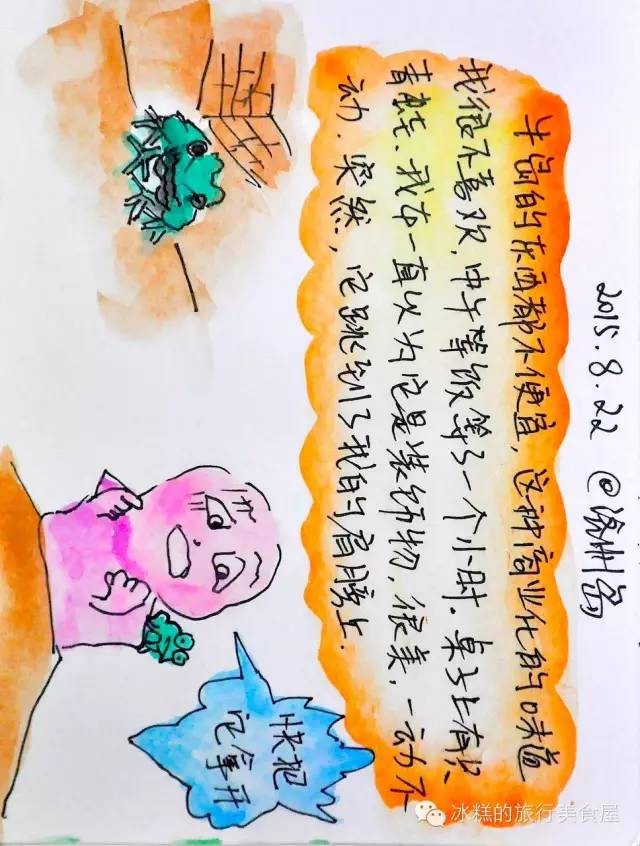 2015.8.22 @涤州岛
半岛的东西都不便宜,这种商业化的味道
我很不喜欢,中午等饭等了一个小时.桌子上有只
青蛙、我本一直以为它是装饰物,很美,一动不
动.突然,它跳到了我的肩膀上.
快把
它拿开
冰糕的旅行美食屋